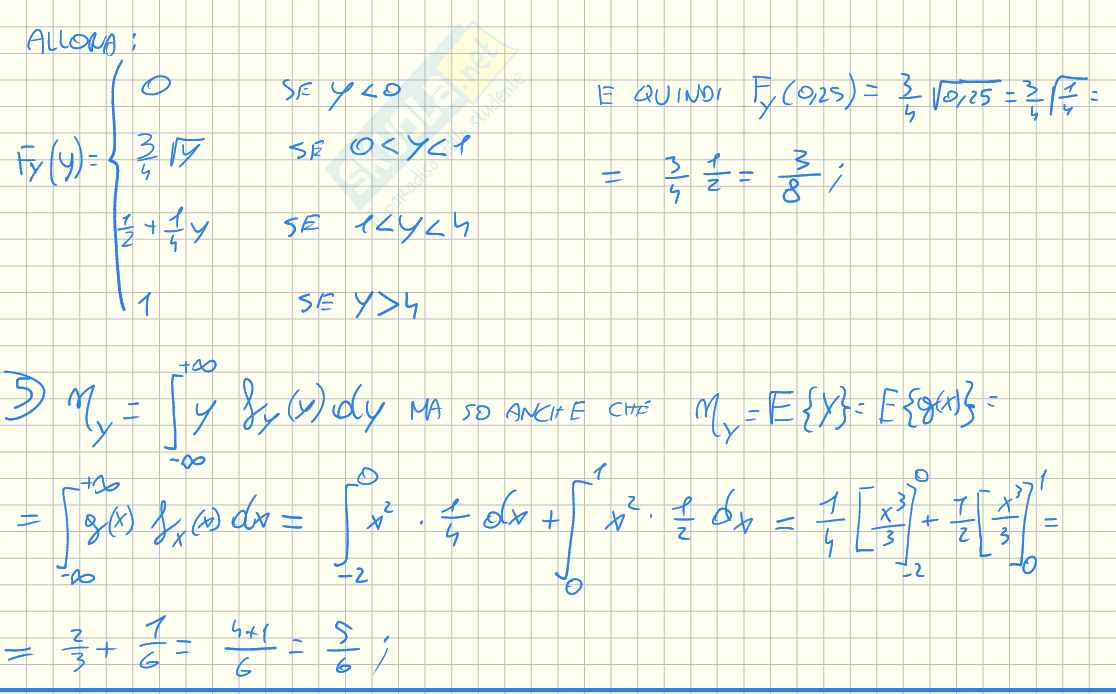 ALLORA:
F_Y(y) = { 0 SE y<0
3/4 √y SE 0<y<1
1/2 + 1/4 y SE 1<y<4
1 SE y>4
E QUINDI F_Y(0,25) = 3/4 √0,25 = 3/4 √1/4 =
= 3/4 1/2 = 3/8 ;
5) η_Y = ∫_{-∞}^{+∞} y f_Y(y) dy MA SO ANCHE CHE η_Y = E{Y} = E{g(x)} =
= ∫_{-∞}^{+∞} g(x) f_x(x) dx = ∫_{-2}^{0} x² · 1/4 dx + ∫_{0}^{1} x² · 1/2 dx = 1/4 [x³/3]_{-2}^{0} + 1/2 [x³/3]_{0}^{1} =
= 2/3 + 1/6 = 4+1/6 = 5/6 ;
SKUOLA.net